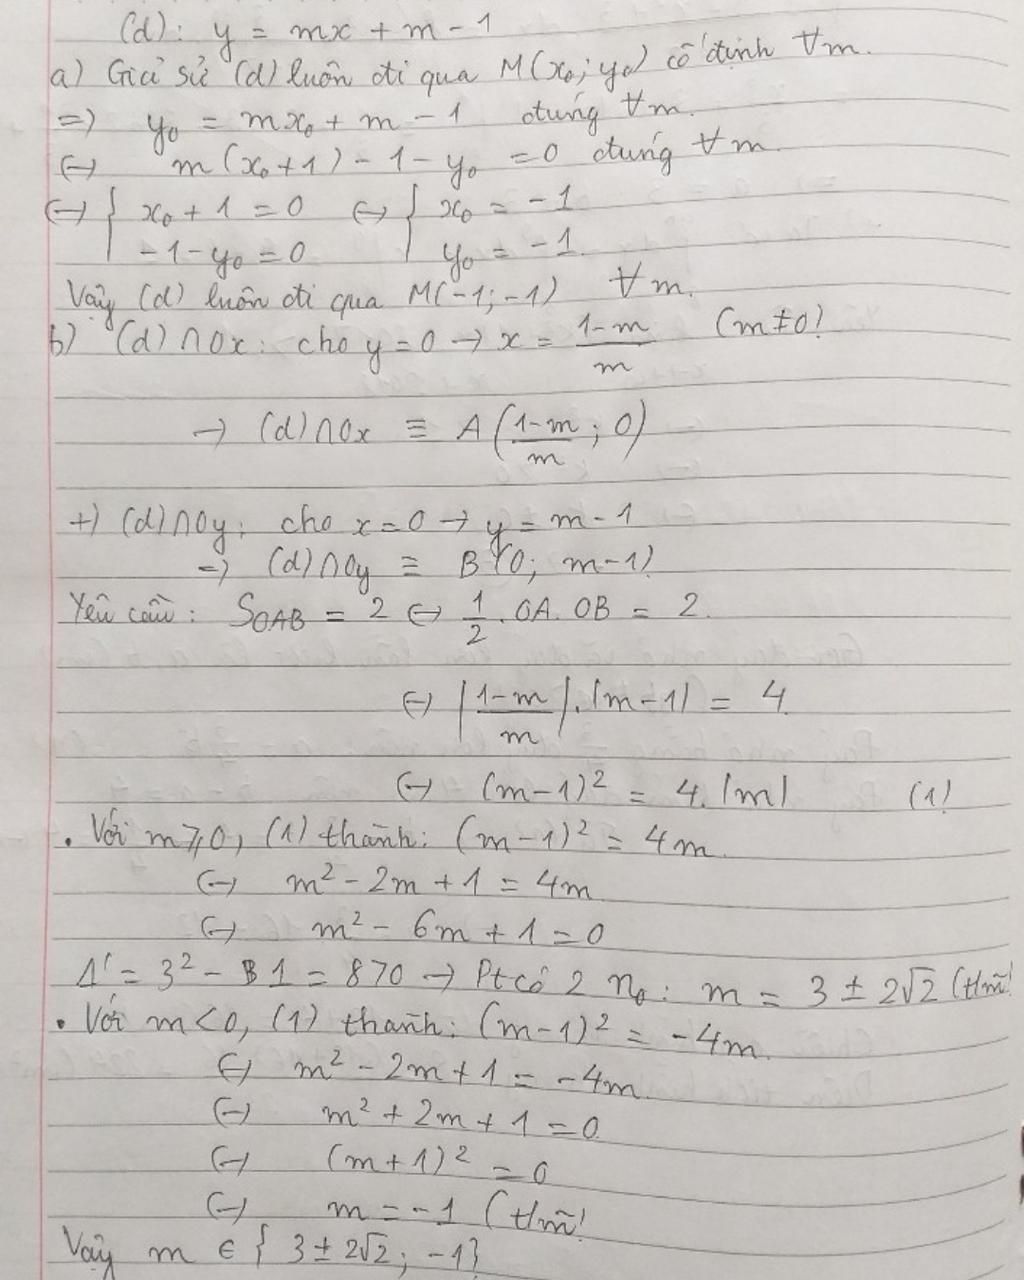 (d): y = mx + m - 1
a) Giả sử (d) luôn đi qua M(x₀; y₀) cố định ∀m.
=> y₀ = mx₀ + m - 1 đúng ∀m.
<=> m(x₀+1) - 1 - y₀ = 0 đúng ∀m.
<=> { x₀ + 1 = 0 <=> { x₀ = -1
-1 - y₀ = 0 y₀ = -1
Vậy (d) luôn đi qua M(-1; -1) ∀m.
b) (d)∩Ox: cho y = 0 → x = (1-m)/m (m ≠ 0)
→ (d)∩Ox ≡ A((1-m)/m ; 0)
+) (d)∩Oy: cho x = 0 → y = m - 1
=> (d)∩Oy ≡ B(0; m-1)
Yêu cầu: S_OAB = 2 <=> 1/2 . OA. OB = 2.
<=> |(1-m)/m|.|m-1| = 4.
<=> (m-1)² = 4.|m| (1)
. Với m ≥ 0, (1) thành: (m-1)² = 4m.
<=> m² - 2m + 1 = 4m
<=> m² - 6m + 1 = 0
Δ' = 3² - 1 = 8 > 0 → Pt có 2 n₀: m = 3 ± 2√2 (t/m)
. Với m < 0, (1) thành: (m-1)² = -4m.
<=> m² - 2m + 1 = -4m.
<=> m² + 2m + 1 = 0.
<=> (m+1)² = 0
<=> m = -1 (t/m)
Vậy m ∈ { 3 ± 2√2; -1}